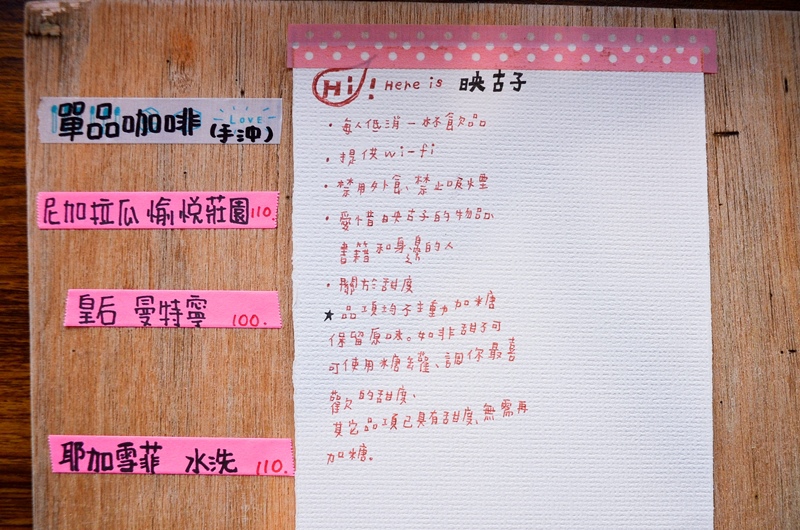 單品咖啡 (手沖)
LOVE
尼加拉瓜 愉悅莊園 110.
皇后 曼特寧 100.
耶加雪菲 水洗 110.
Hi! Here is 映古子
• 每人低消一杯飲品
• 提供 wi-fi
• 禁用外食、禁止吸煙
• 愛惜映古子的物品
書籍和身邊的人
• 關於甜度
★ 品項均不主動加糖
保留原味。如非甜不可
可使用糖去 調你最喜
歡的甜度、
其它品項已具有甜度、無需再
加糖。